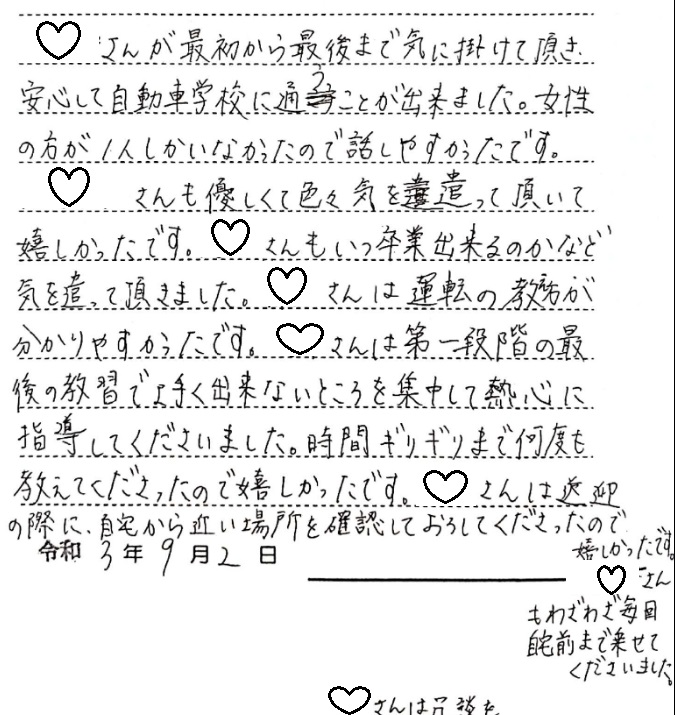 ♡さんが最初から最後まで気に掛けて頂き、
安心して自動車学校に通うことが出来ました。女性
の方が1人しかいなかったので話しやすかったです。
♡さんも優しくて色々気を遣って頂いて
嬉しかったです。♡さんもいつ卒業出来るのかなど
気を遣って頂きました。♡さんは運転の教え方が
分かりやすかったです。♡さんは第一段階の最
後の教習で上手く出来ないところを集中して熱心に
指導してくださいました。時間ギリギリまで何度も
教えてくださったので嬉しかったです。♡さんは送迎
の際に、自宅から近い場所を確認しておろしてくださったので
嬉しかったです。
令和3年9月2日
♡さん
もわざわざ毎回
自宅前まで乗せて
くださいました。
♡さんは冗談を